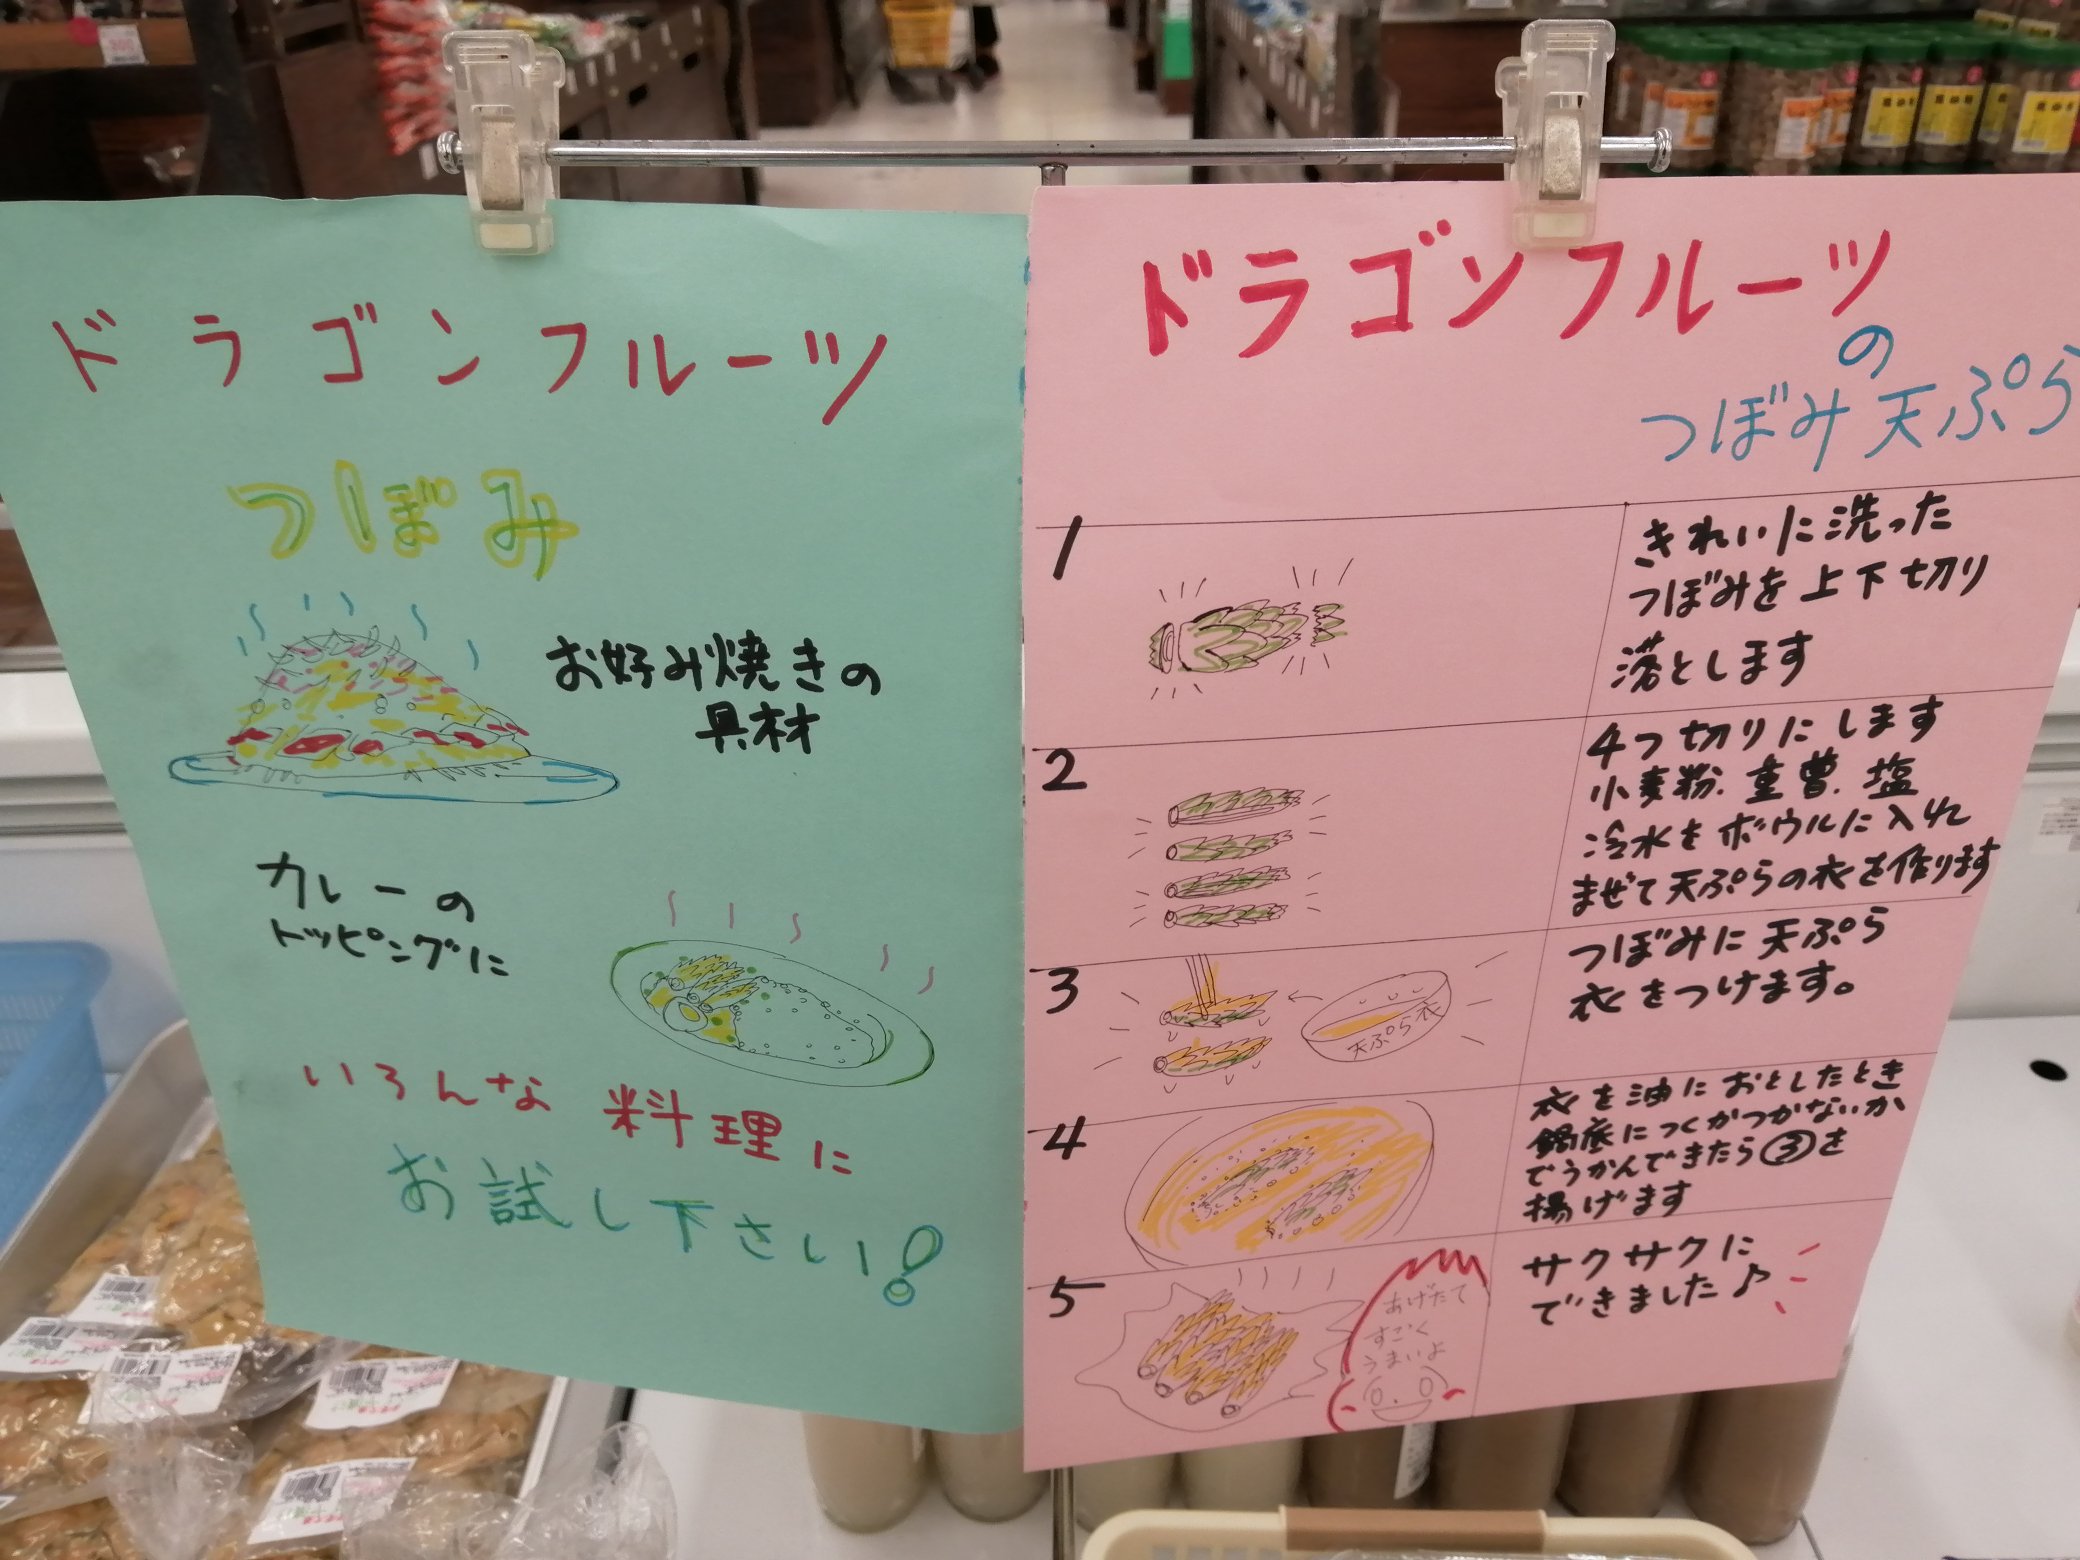 ドラゴンフルーツ
つぼみ
お好み焼きの
具材
カレーの
トッピングに
いろんな料理に
お試し下さい!
ドラゴンフルーツ
の
つぼみ天ぷら
1
きれいに洗った
つぼみを上下切り
落とします
2
4つ切りにします
小麦粉.重曹.塩
冷水をボウルに入れ
まぜて天ぷらの衣を作ります
3
天ぷら衣
つぼみに天ぷら
衣をつけます。
4
衣を油におとしたとき
鍋底につくかつかないか
でうかんできたら③を
揚げます
5
あげたて
すごく
うまいよ
サクサクに
できました♪